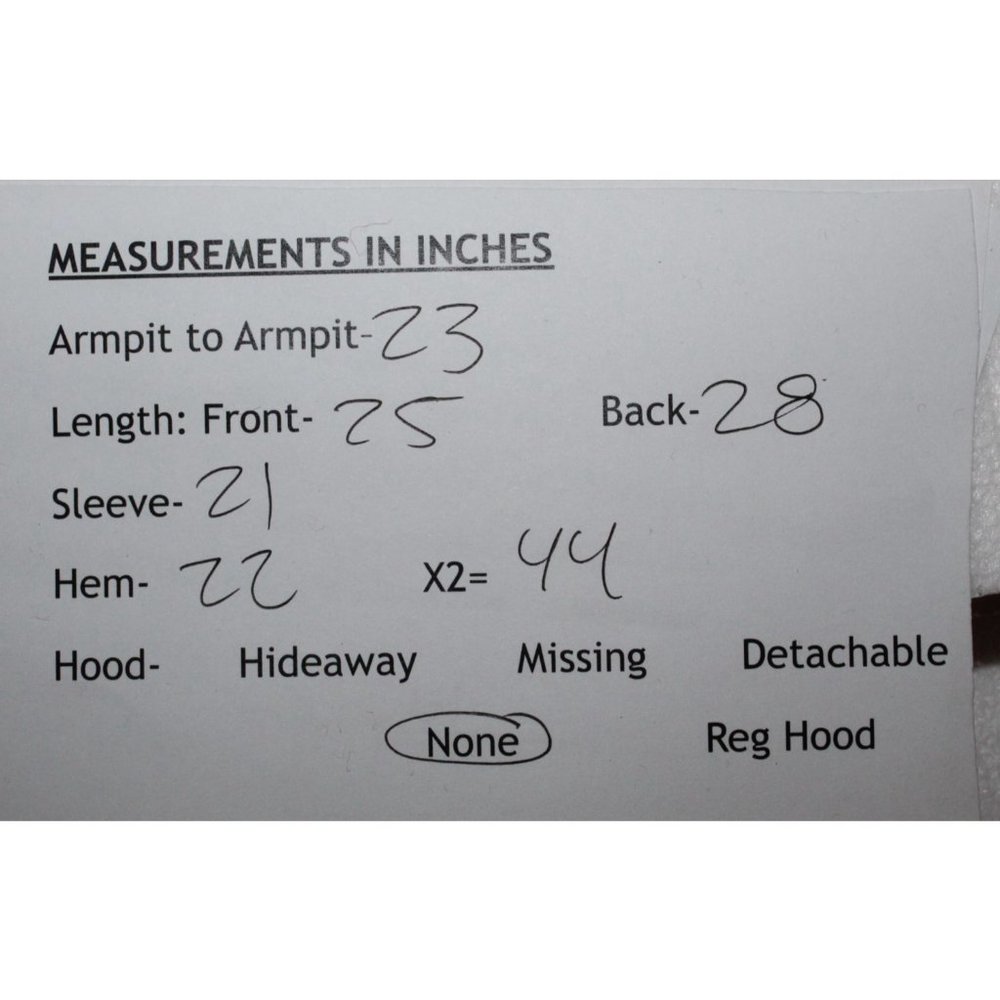 MEASUREMENTS IN INCHES
Armpit to Armpit-23
Length: Front- 25 Back-28
Sleeve- 21
Hem- 22 X2= 44
Hood- Hideaway Missing Detachable
None Reg Hood